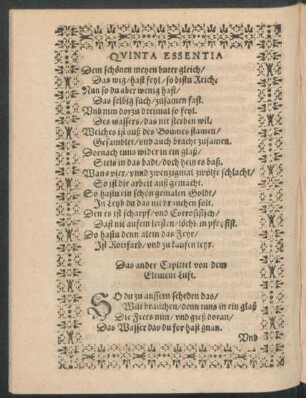 QVINTA ESSENTIA
Dem schönen meyen buter gleich/
Das wig/ hast feyl/ so bistu Reich:
Nun so du aber wenig hast/
Das selbig such/ zusamen fast.
Vnd nun dorzu dreimal so feyl.
Des wassers/ das nit sterben wil/
Welches ist auß des Boumes stamen/
Gesamblet/ vnd auch bracht zusamen.
Dornach tuns wider in ein glaß/
Stels in das badt/ doch hein es baß,
Wans vier/ vnnd zwenzigmal zwölfe schlacht/
So ist die arbeit auß gemacht.
So hastu ein schön gemalen Goldt/
In Leyb du das nicht suchen solt.
Den es ist scharpf/ vnd Corrosisisch/
Dast nit aussem leisten/
So hastu denn alein das Feyr/
Ist Rottfarb/ vnd zu kaufen teyr.
Das ander Capittel von dem
Element Luft.
SO du zu aussern scheden das/
Wilt brauchen/ denn tuns in ein glaß
Die Feces nim/ vnd gieß doran/
Das Wasser das du for hast gnan.
Vnd